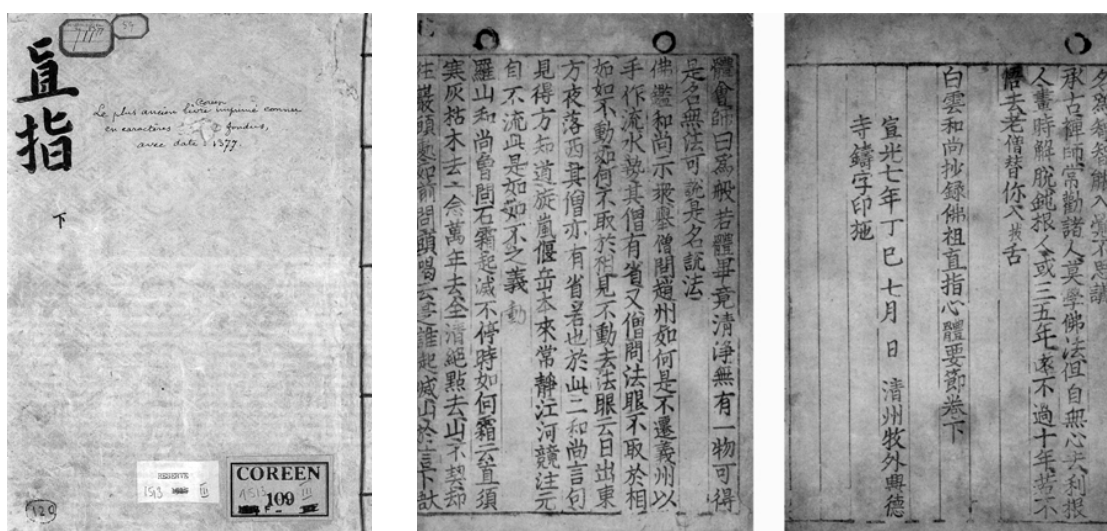 直指
下
Coreen
Le plus ancien livre imprimé connu
en caractères fondus,
avec date 1377.
RESERVE
COREEN
109
120
體會師曰爲般若體畢竟清淨無有一物可得
是名無法可說是名說法
佛鑑和尚示衆舉僧問趙州如何是不遷義州以
手作流水勢其僧有省又僧問法眼不取於相
如如不動如何不取於相見不動去法眼云日出東
方夜落西其僧亦有省若也於此二和尚言句
見得方知道旋嵐偃岳本來常靜江河競注元
自不流此是如如不之義 動
羅山和尚曾問石霜起滅不停時如何霜云直須
寒灰枯木去一念萬年去全清絕點去山不契却
往巖頭處如前問頭喝云是誰起滅山於言下
名爲智智能入覺不思議
承古禪師常勸諸人莫學佛法但自無心去利根
人晝時解脫鈍根人或三五年遠不過十年若不
悟去老僧替你入拔舌
白雲和尚抄錄佛祖直指心體要節卷下
宣光七年丁巳七月 日 清州牧外興德
寺鑄字印施